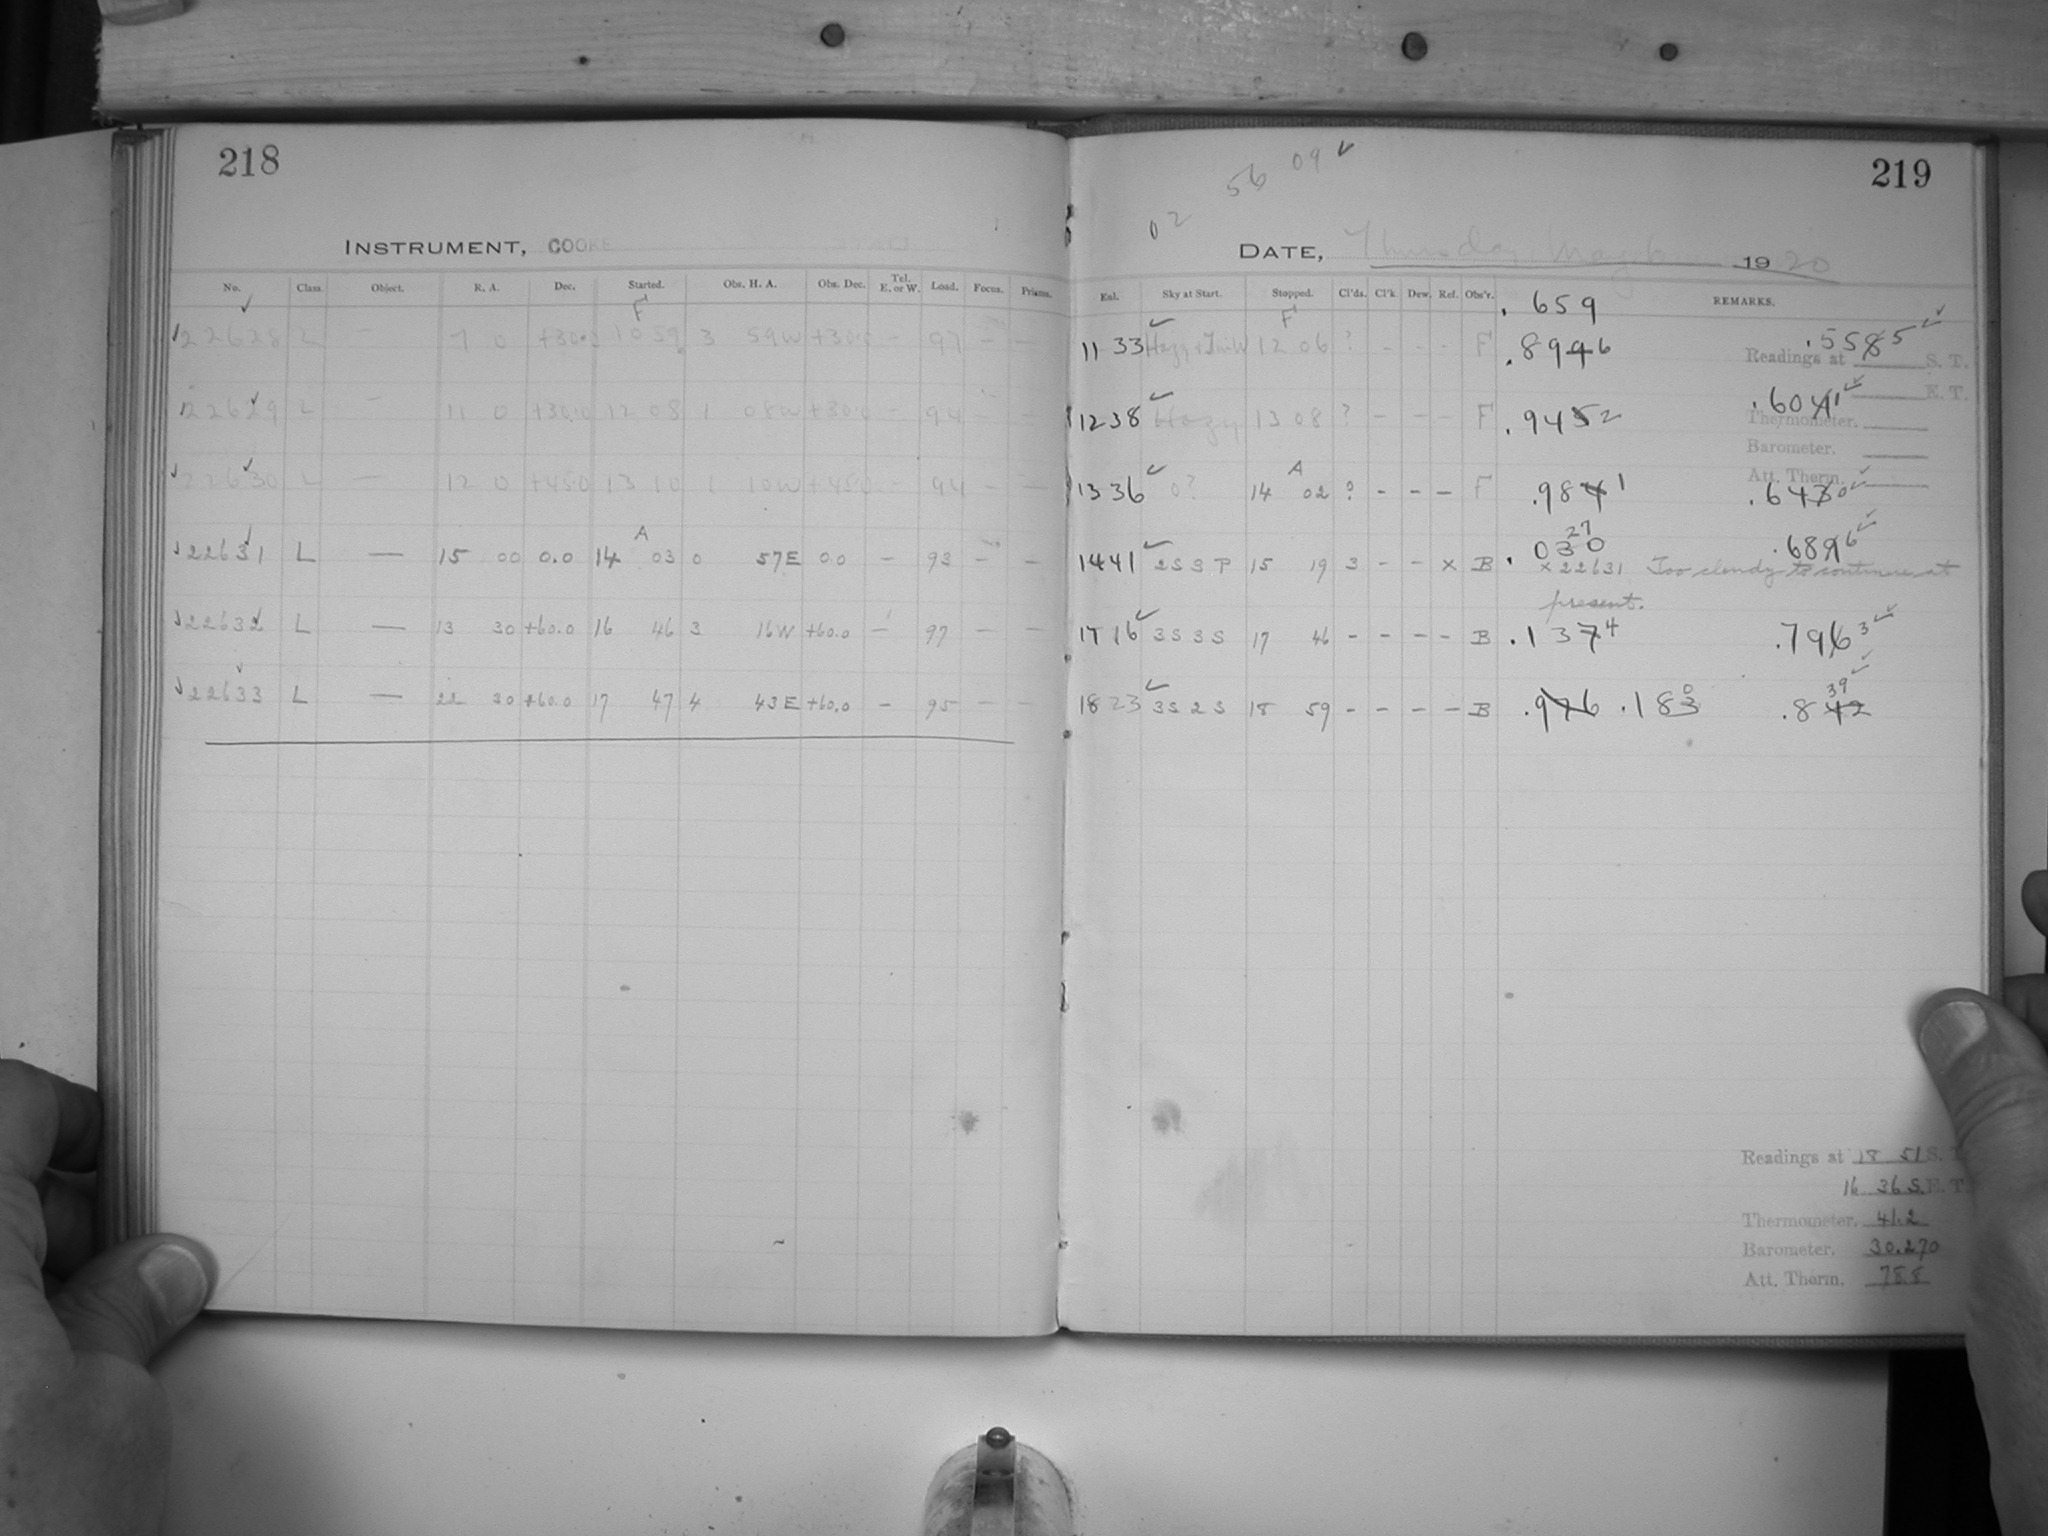 218
INSTRUMENT, COOKE
No. Class. Object. R. A. Dec. Started. Obs. H. A. Obs. Dec. Tel. E. or W. Load. Focus. Prisms.
F
22628 L — 7 0 +30.0 10 59 3 59W +30.0 — 97 — —
22629 L — 11 0 +30.0 12 08 1 08W +30.0 — 94 — —
22630 L — 12 0 +45.0 13 10 1 10W +45.0 — 94 — —
A
22631 L — 15 00 0.0 14 03 0 57E 0.0 — 93 — —
22632 L — 13 30 +60.0 16 46 3 16W +60.0 — 97 — —
22633 L — 22 30 +60.0 17 47 4 43E +60.0 — 95 — —
219
02 56 09 ✓
DATE, Thursday, May 6 1920
Exl. Sky at Start. Stopped. Cl'ds. Cl'k. Dew. Ref. Obs'r. REMARKS.
.659
F
11 33 ✓ Hazy 12 06 ? - - - F .8946 .5585 ✓✓
Readings at S. T.
E. T.
12 38 ✓ Hazy 13 08 ? - - - F .9452 .6041 ✓
Thermometer.
Barometer.
Att. Therm.
A
13 36 ✓ 0? 14 02 ? - - - F .9841 .6430 ✓
27
14 41 ✓ 2S 3 P 15 19 3 - - x B .030 .6896 ✓✓
x22631 Too cloudy to continue at
present.
17 16 ✓ 3S 3 S 17 46 - - - - B .1374 .7963 ✓✓
0 39 ✓
18 23 ✓ 3S 2 S 18 59 - - - - B .976 .183 .842
Readings at 18 51 S. T.
16 36 S. E. T.
Thermometer. 41.2
Barometer. 30.270
Att. Therm. 78.8